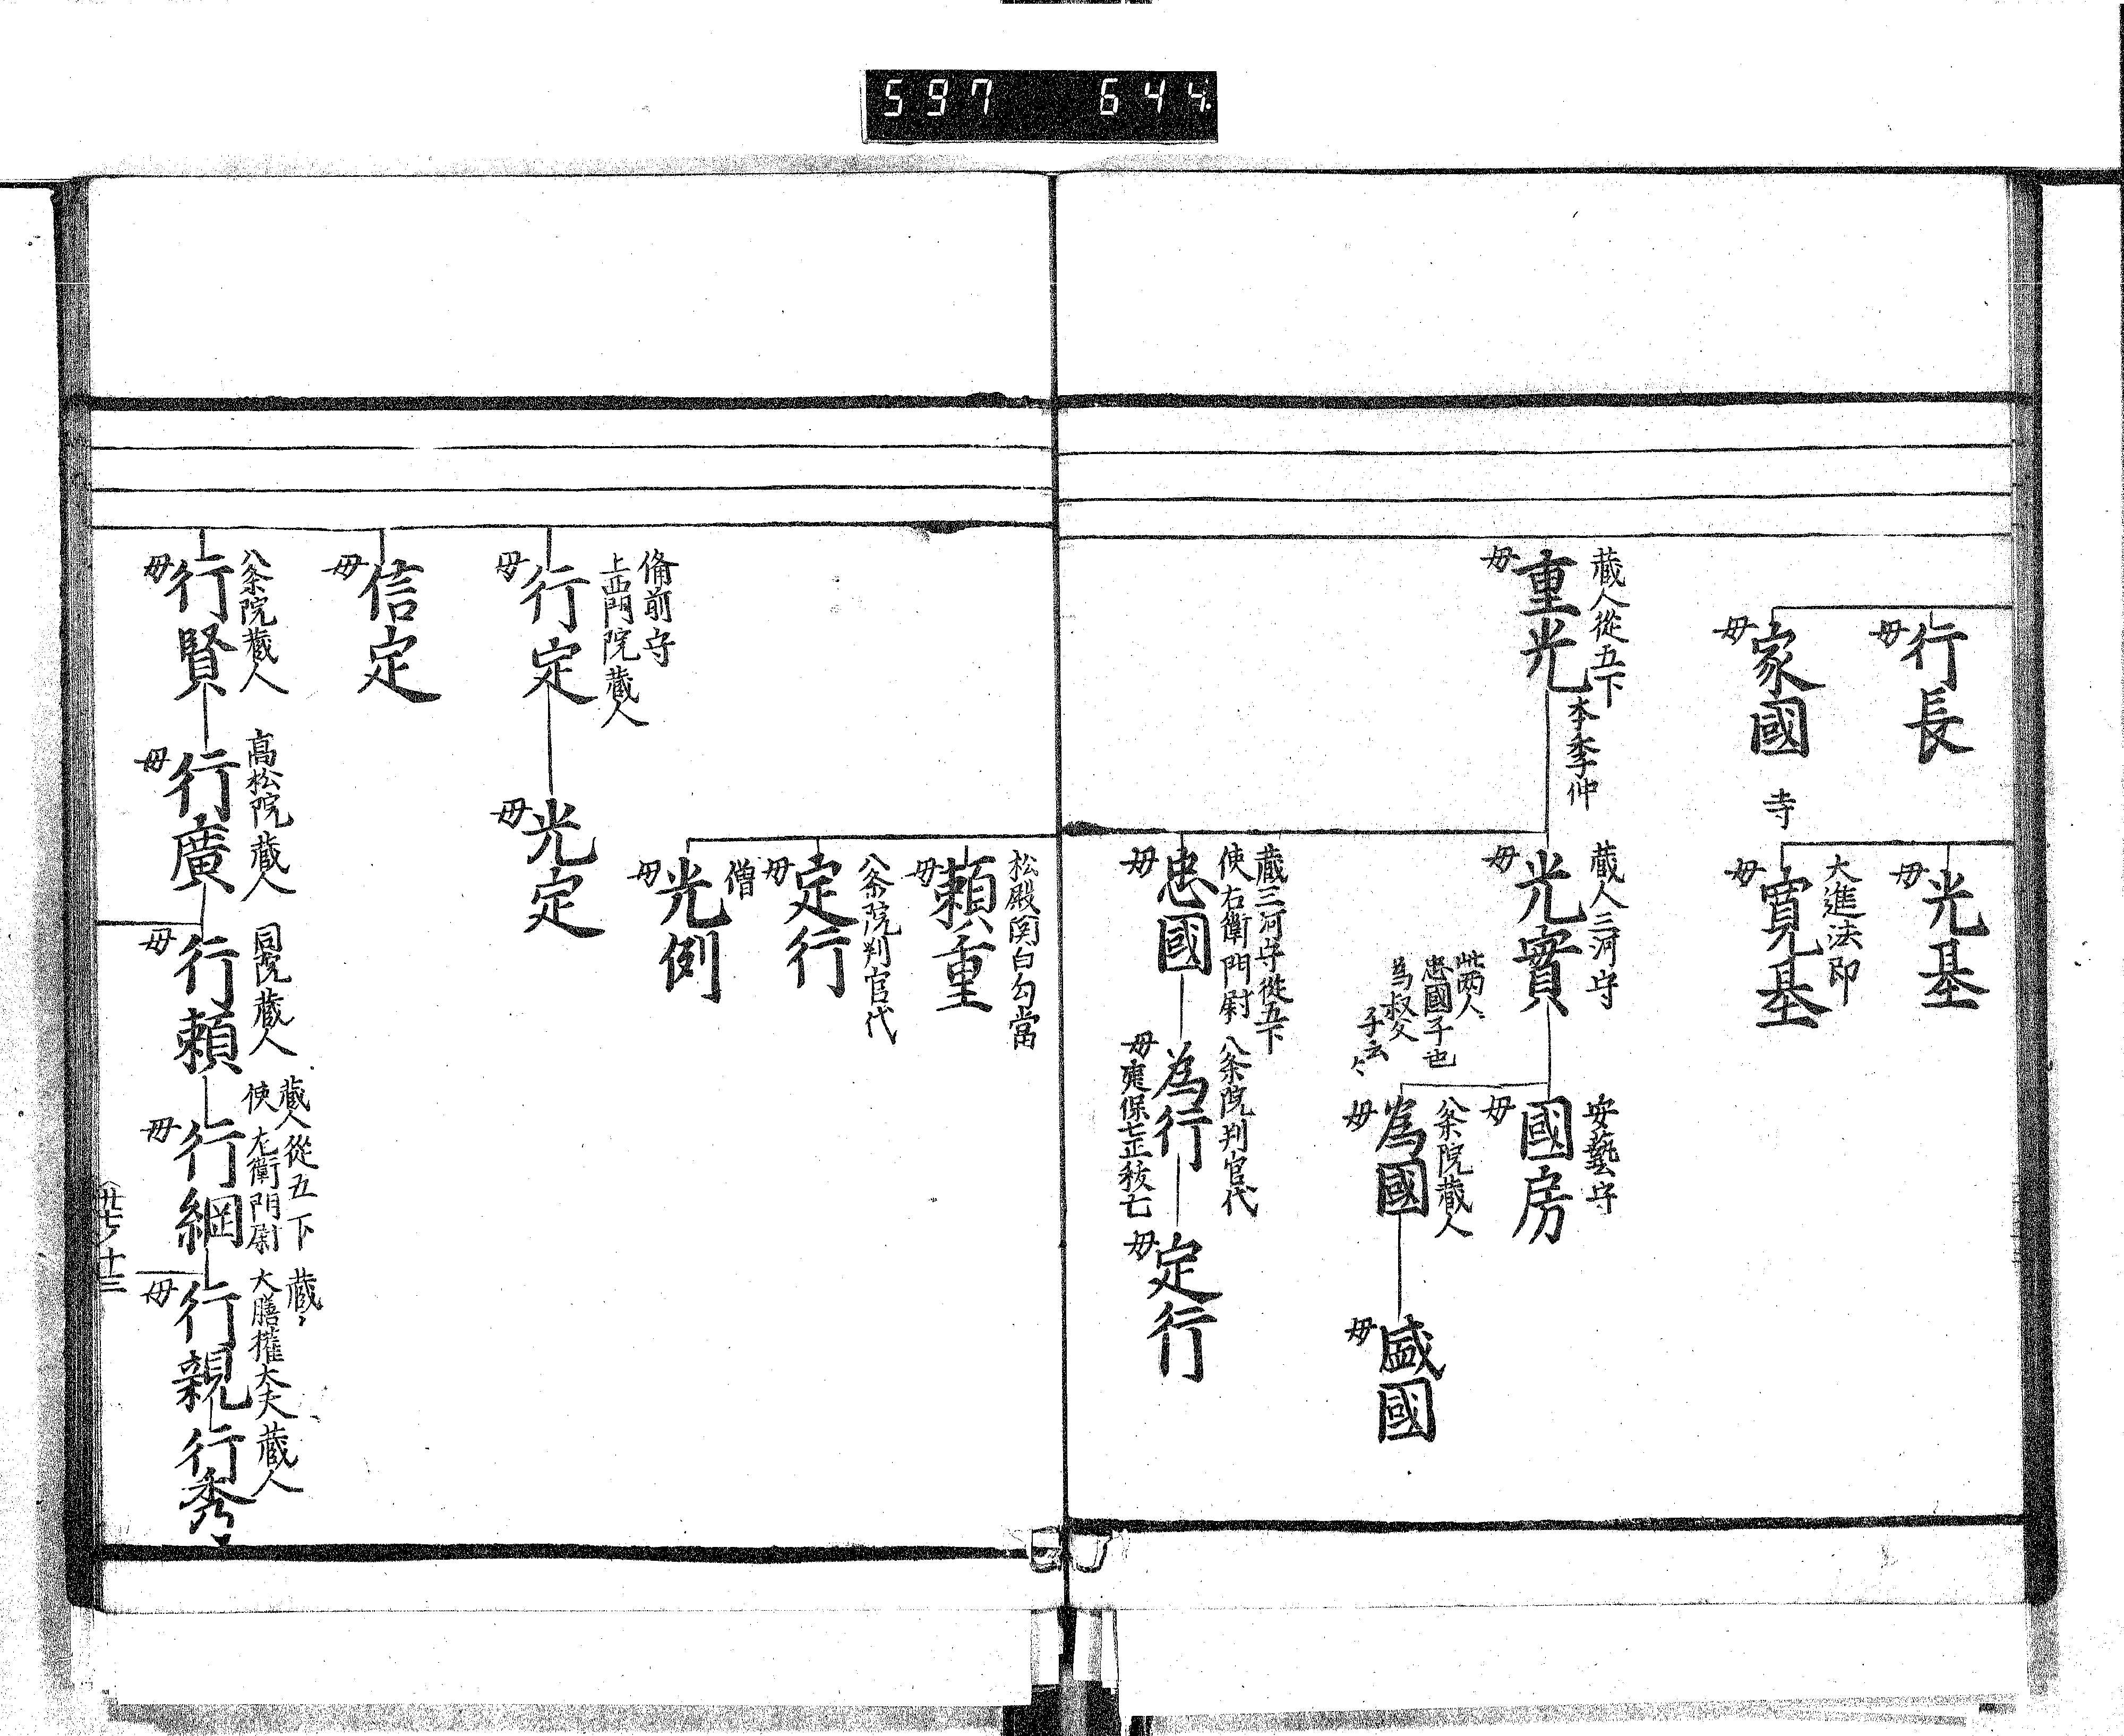 597 644
行長
母
家國
母
光基
母
寺
大進法印
寛基
母
蔵人從五下
重光
母
本季仲
蔵人三河守
光實
母
安藝守
國房
母
此両人
忠國子也
為叔父
子云々
八条院蔵人
為國
母
盛國
母
蔵三河守從五下
使右衛門尉
忠國
母
八条院判官代
為行
母
定行
母
松殿関白勾當
頼重
母
八条院判官代
定行
母
僧
光例
母
俻前守
上西門院蔵人
行定
母
光定
母
信定
母
八条院蔵人
行賢
母
高松院蔵人
行廣
母
同院蔵人
行頼
母
蔵人從五下
使左衛門尉
行綱
母
蔵〻
大膳權大夫
行親
母
蔵人
行秀
卅七ノ十三